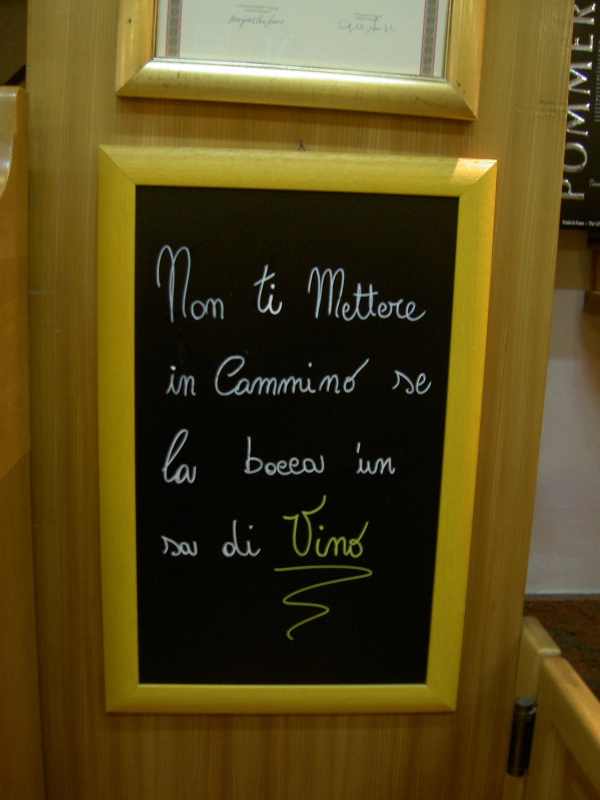 Non ti Mettere
in Cammino se
la bocca 'un
sa di Vino
POMMER